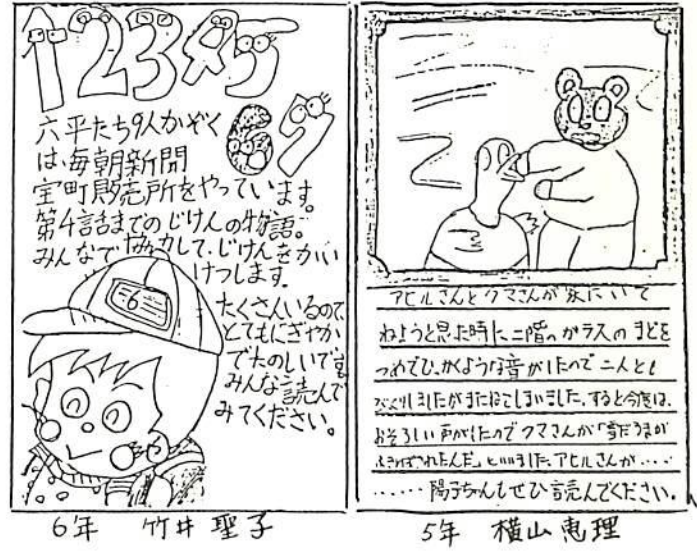 12345
67
六平たち9人かぞく
は、毎朝新聞
室町販売所をやっています。
第4話までのじけんの物語。
みんなで協力して、じけんをかい
けつします。
6
たくさんいるので、
とてもにぎやか
でたのしいです。
みんな読んで
みてください。
6年 竹井聖子
アヒルさんとクマさんが家にいて
ねようと思た時に、二階のガラスのまどを
つめでひっかくような音がしたので二人とも
びっくりしましたがまたねてしまいました。すると今度は、
おそろしい声がしたのでクマさんが「雪だるまが
といいました。アヒルさんが‥‥
‥‥‥陽子ちゃんもぜひ読んでください。
5年 横山恵理